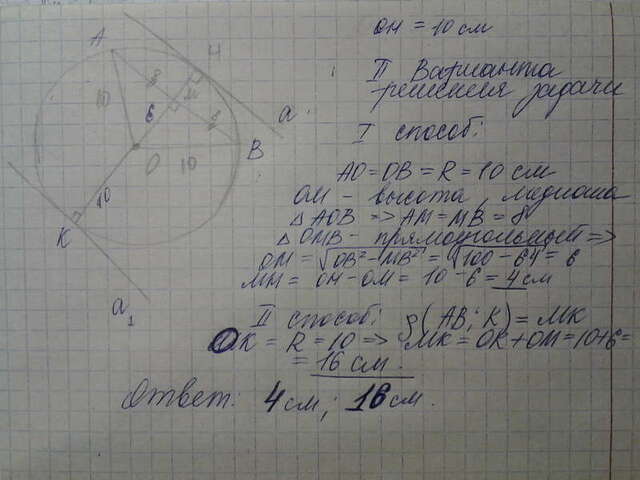 OH = 10 см
II Варианта
решения задачи
I способ:
AO = OB = R = 10 см
OM - высота, медиана
△ AOB => AM = MB = 8
△ OMB - прямоугольный =>
OM = √OB² - MB² = √100 - 64 = 6
MH = OH - OM = 10 - 6 = 4 см
II способ: ρ(AB; K) = MK
OK = R = 10 => MK = OK + OM = 10 + 6 =
= 16 см.
Ответ: 4 см; 16 см.
A
H
8
10
6
4
8
a
B
O
10
10
K
a₁